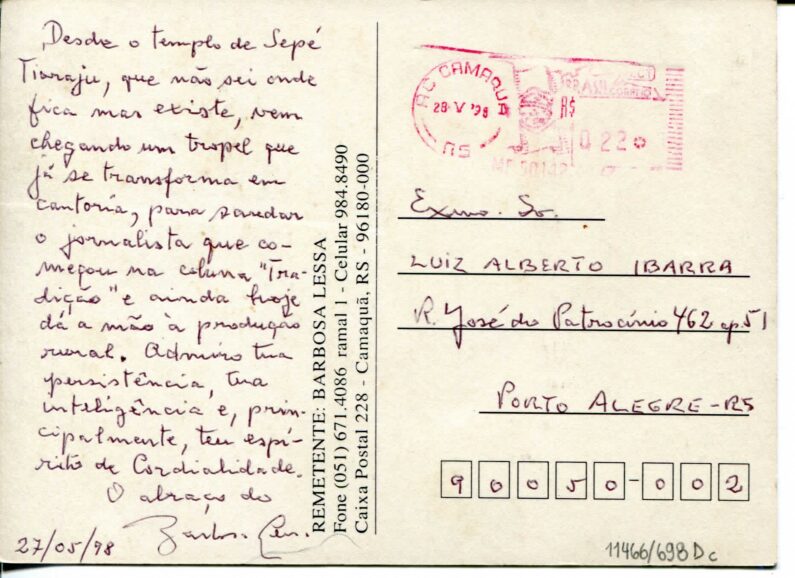 Desde o templo de Sepé
Tiaraju, que não sei onde
fica mas existe, vem
chegando um tropel que
já se transforma em
cantoria, para saudar
o jornalista que co-
meçou na coluna "Tra-
dição" e ainda hoje
dá a mão à produção
rural. Admiro tua
persistência, tua
inteligência e, prin-
cipalmente, teu espí-
rito de Cordialidade.
O abraço do
Barbosa Lessa
27/05/98
REMETENTE: BARBOSA LESSA
Fone (051) 671.4086 ramal 1 - Celular 984.8490
Caixa Postal 228 - Camaquã, RS - 96180-000
AC CAMAQUA
28 V '98
RS
R$
022
Exmo. Sr.
LUIZ ALBERTO IBARRA
R. José do Patrocínio 462 ap. 51
PORTO ALEGRE-RS
90050-002
11466/698 Dc